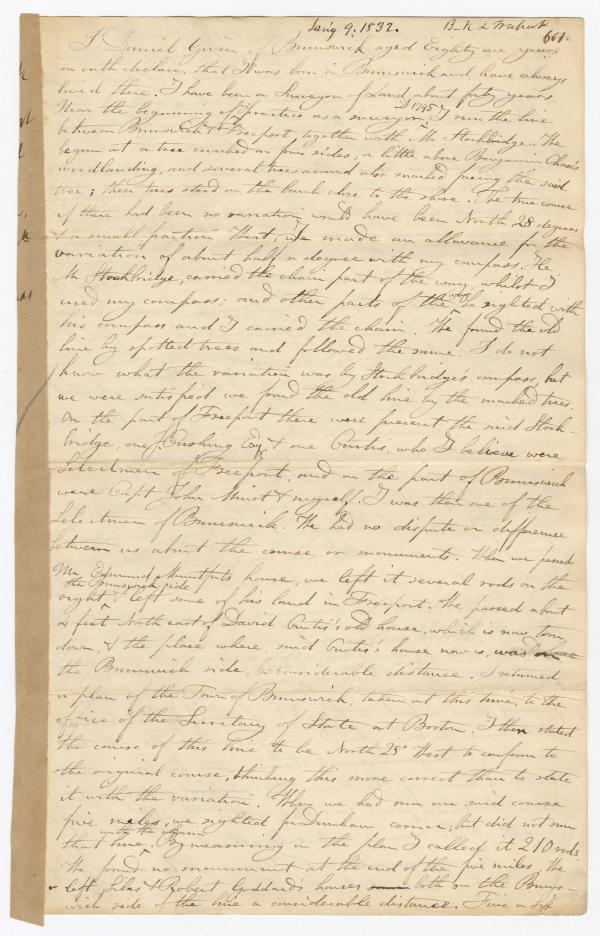 Jan'y 9. 1832.
601.
I Daniel Given of Brunswick aged Eighty one years
on oath declare, that I was born in Brunswick and have always
lived there. I have been a Surveyor of Land about fifty years.
Near the beginning of my practice as a surveyor I run the line
in 1795
between Brunswick & Freeport, together with Mr Stockbridge. We
began at a tree marked on four sides, a little above Benjamin Chase's
woodlanding, and several trees around also marked facing the said
tree; these trees stood on the bank close to the shore. The true course
if there had been no variation would have been North 28 degrees
& a small fraction West; we made an allowance for the
variation of about half a degree with my compass. He
Mr Stockbridge, carried the chain part of the way, whilst I
used my compass; and other parts of the way he sighted with
his compass and I carried the chain. We found the old
line by spotted trees and followed the same. I do not
know what the variation was by Stockbridge's compass, but
we were satisfied we found the old line by the marked trees.
On the part of Freeport there were present the said Stock-
bridge, one Cushing Esq. & one Curtis, who I believe were
Selectmen of Freeport, and on the part of Brunswick
were Capt John Minot & myself. I was then one of the
Selectmen of Brunswick. We had no dispute or difference
between us about the course or monuments. When we passed
Mr Edmund Mountfort's house, we left it several rods on the
the Brunswick side
right & left some of his land in Freeport. We passed about
4 feet North east of David Curtis's old house, which is now torn,
down, & the place where, said Curtis's house now is, was
the Brunswick side, considerable distance. I returned
a plan of the Town of Brunswick, taken at this time, to the
office of the Secretary of State at Boston. I then stated
the course of this line to be North 28° West to conform to
the original course, thinking this more correct than to state
it with the variation. When we had run our said course
five miles, we sighted for Durham corner; but did not run
with the chain
that line. By measuring in the plan I called it 210 rods.
We found no monument at the end of the five miles. We
left Silas & Robert Goddard's houses both on the Bruns-
wick side of the line a considerable distance. Five or six